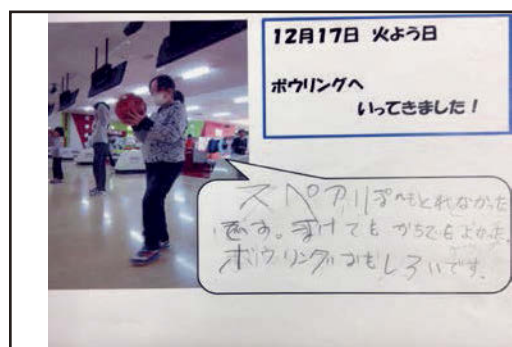 12月17日 火よう日
ボウリングへ
いってきました！
スペアリ もとれなかった
です。まけても かちでもよかた。
ボウリングおもしろいです。